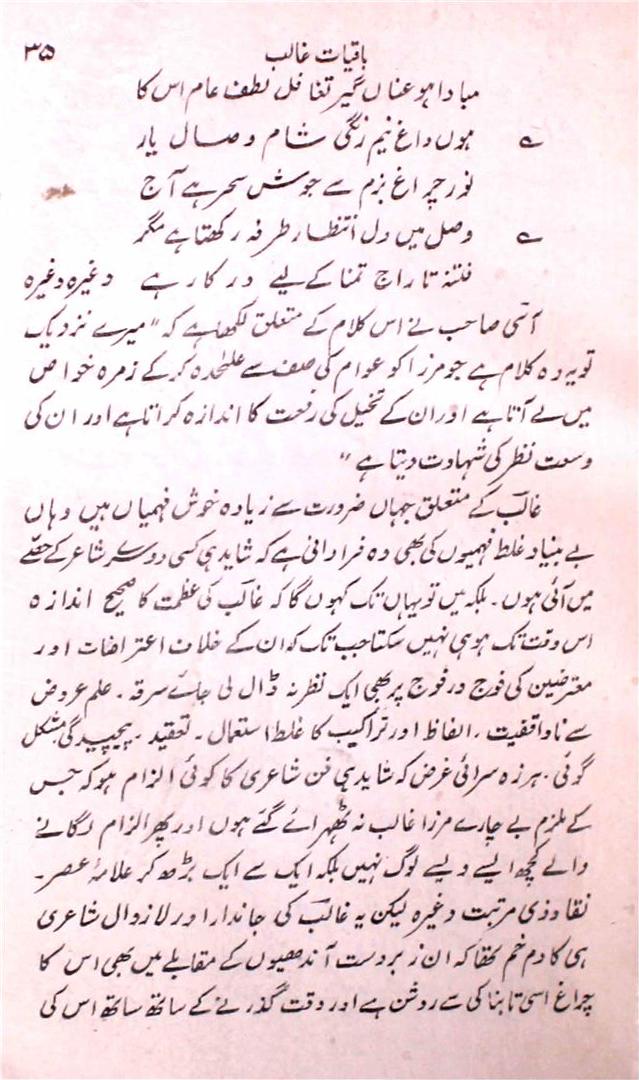 باقیات غالب ۳۵
مبادا ہو عناں گیر تغافل لطف عام اس کا
؎ ہوں داغ نیم رنگی شام وصال یار
نور چراغ بزم سے جوش سحر ہے آج
؎ وصل میں دل انتظار طرفہ رکھتا ہے مگر
فتنہ تاراج تمنا کے لیے درکار ہے وغیرہ وغیرہ
آسی صاحب نے اس کلام کے متعلق لکھا ہے کہ "میرے نزدیک
تو یہ وہ کلام ہے جو مرزا کو عوام کی صف سے علٰحدہ کر کے زمرہ خواص
میں لے آتا ہے اور ان کے تخیل کی رفعت کا اندازہ کراتا ہے اور ان کی
وسعت نظر کی شہادت دیتا ہے"
غالبؔ کے متعلق جہاں ضرورت سے زیادہ خوش فہمیاں ہیں وہاں
بے بنیاد غلط فہمیوں کی بھی وہ فراوانی ہے کہ شاید ہی کسی دوسرے شاعر کے حصّے
میں آئی ہوں۔ بلکہ میں تو یہاں تک کہوں گا کہ غالبؔ کی عظمت کا صحیح اندازہ
اس وقت تک ہو ہی نہیں سکتا جب تک کہ ان کے خلاف اعتراضات اور
معترضین کی فوج در فوج پر بھی ایک نظر نہ ڈال لی جائے سرقہ۔ علم عروض
سے ناواقفیت، الفاظ اور تراکیب کا غلط استعمال۔ تعقید۔ پیچیدگی مشکل
گوئی۔ ہرزہ سرائی غرض کہ شاید ہی فن شاعری کا کوئی الزام ہو کہ جس
کے ملزم بے چارے مرزا غالب نہ ٹھہرائے گئے ہوں اور پھر الزام لگانے
والے کچھ ایسے ویسے لوگ نہیں بلکہ ایک سے ایک بڑھ کر علامۂ عصر۔
نقاد ذی مرتبت وغیرہ لیکن یہ غالبؔ کی جاندار اور لازوال شاعری
ہی کا دم خم تھا کہ ان زبردست آندھیوں کے مقابلے میں بھی اس کا
چراغ اسی تابناکی سے روشن ہے اور وقت گذرنے کے ساتھ ساتھ اس کی